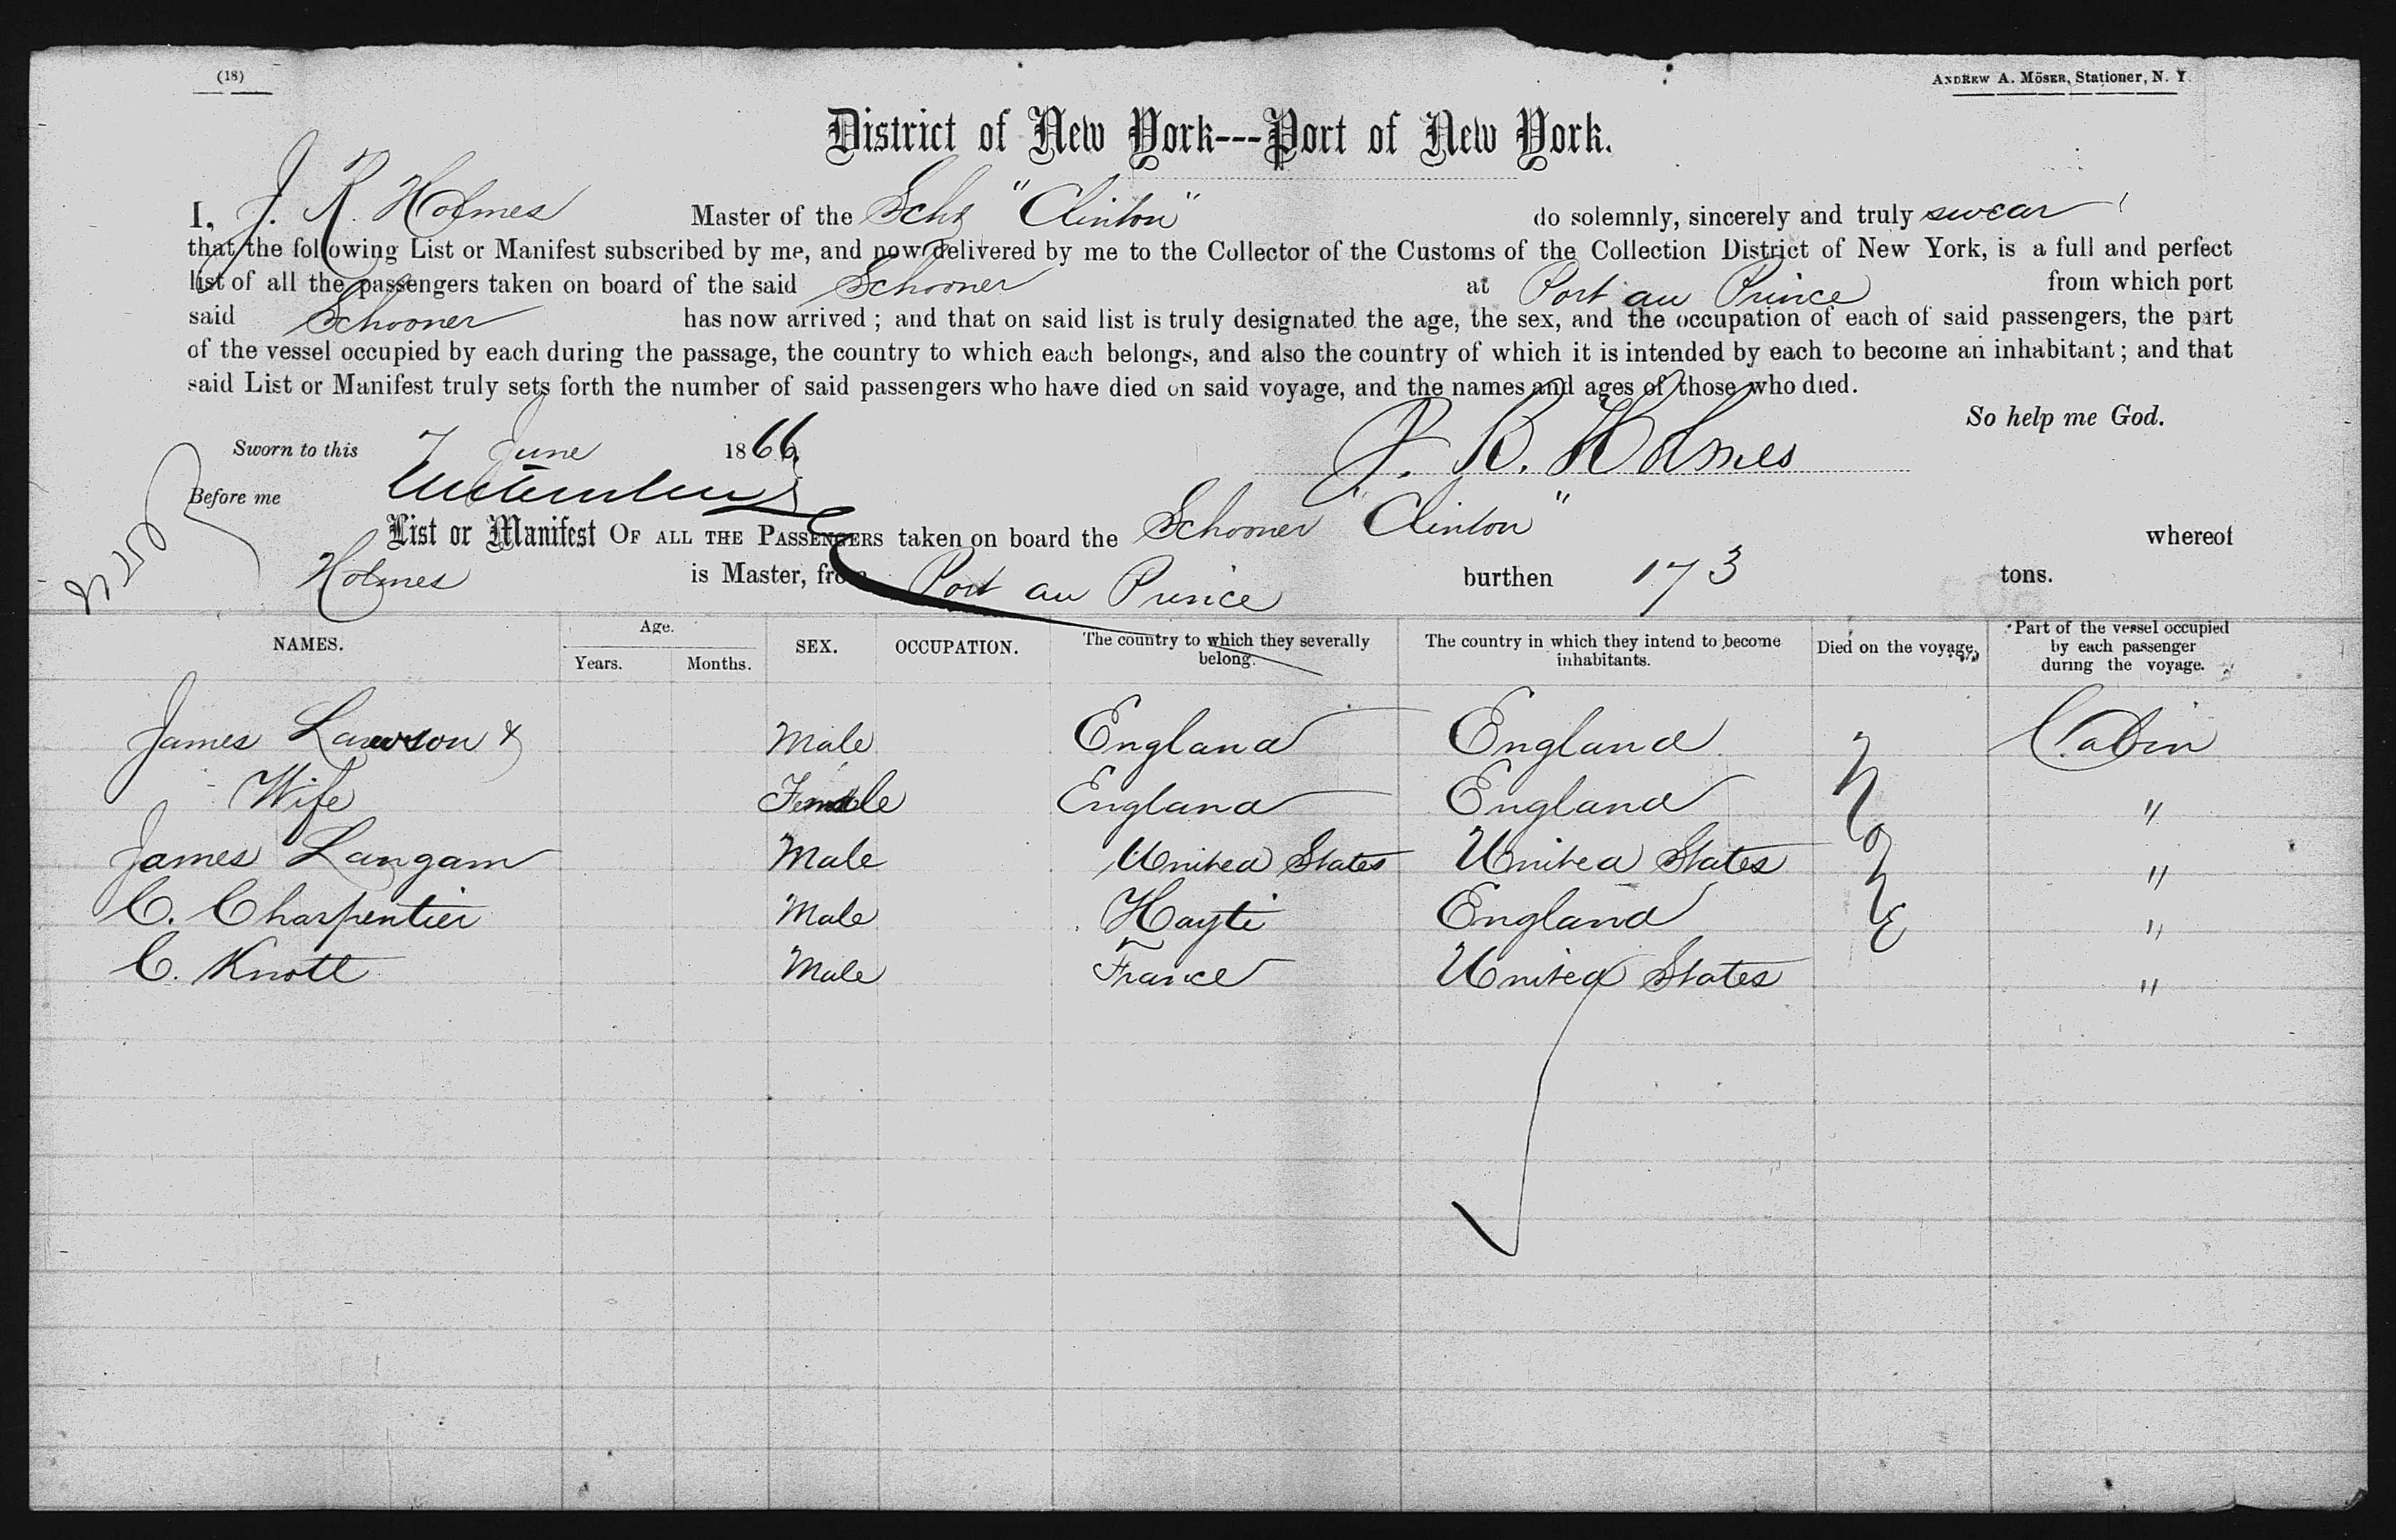 (18)
ANDREW A. MÖSER, Stationer, N. Y.
District of New York---Port of New York.
I, J. R. Holmes Master of the Schr "Clinton" do solemnly, sincerely and truly swear
that the following List or Manifest subscribed by me, and now delivered by me to the Collector of the Customs of the Collection District of New York, is a full and perfect
list of all the passengers taken on board of the said Schooner at Port au Prince from which port
said Schooner has now arrived; and that on said list is truly designated the age, the sex, and the occupation of each of said passengers, the part
of the vessel occupied by each during the passage, the country to which each belongs, and also the country of which it is intended by each to become an inhabitant; and that
said List or Manifest truly sets forth the number of said passengers who have died on said voyage, and the names and ages of those who died.
So help me God.
Sworn to this 7 June 1866 J. R. Holmes
Before me
List or Manifest OF ALL THE PASSENGERS taken on board the Schooner "Clinton" whereof
Holmes is Master, from Port au Prince burthen 173 tons.
NAMES. Age. Years. Months. SEX. OCCUPATION. The country to which they severally belong. The country in which they intend to become inhabitants. Died on the voyage. Part of the vessel occupied by each passenger during the voyage.
James Lawson & Male England England Cabin
Wife Female England England "
James Langam Male United States United States "
C. Charpentier Male Hayti England "
C. Knott Male France United States "